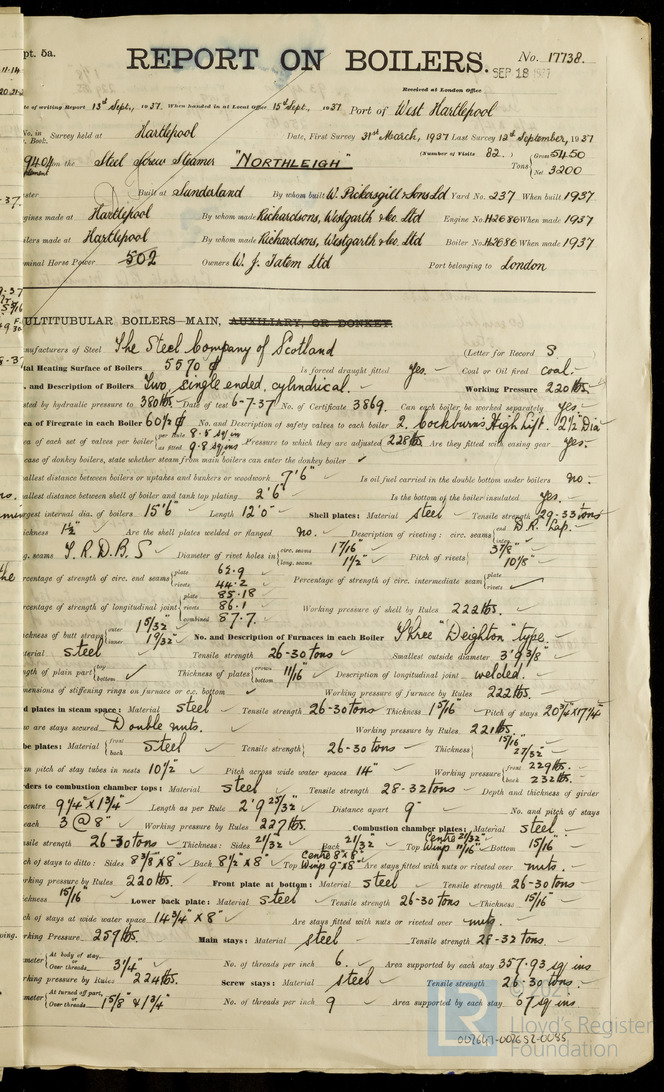 pt. 5a.
REPORT ON BOILERS.
No. 17738.
SEP 18 1937
Received at London Office
te of writing Report 13th Sept., 1937. When handed in at Local Office 15th Sept., 1937 Port of West Hartlepool
No. in Survey held at Hartlepool Date, First Survey 31st March, 1937 Last Survey 12th September, 1937
Book.
9404 on the Steel Screw Steamer "NORTHLEIGH" (Number of Visits 82.) Tons { Gross 5450 Net 3200
Built at Sunderland By whom built W. Pickersgill & Sons Ld Yard No. 237 When built 1937.
gines made at Hartlepool By whom made Richardsons, Westgarth & Co. Ltd Engine No. H2686 When made 1937
ilers made at Hartlepool By whom made Richardsons, Westgarth & Co. Ltd Boiler No. H2686 When made 1937
minal Horse Power 502 Owners W. J. Tatem Ltd Port belonging to London
ULTITUBULAR BOILERS—MAIN, AUXILIARY, OR DONKEY.
nufacturers of Steel The Steel Company of Scotland (Letter for Record S.)
tal Heating Surface of Boilers 5570 Is forced draught fitted Yes. Coal or Oil fired coal.
. and Description of Boilers Two, single ended, cylindrical. Working Pressure 220 lbs.
sted by hydraulic pressure to 380 lbs. Date of test 6-7-37 No. of Certificate 3869. Can each boiler be worked separately Yes
ea of Firegrate in each Boiler 60½ No. and Description of safety valves to each boiler 2, Cockburn's High Lift. 2½ Dia
ea of each set of valves per boiler { per Rule 8.5 sq in as fitted 9.8 sq ins Pressure to which they are adjusted 228 lbs. Are they fitted with easing gear Yes.
case of donkey boilers, state whether steam from main boilers can enter the donkey boiler
allest distance between boilers or uptakes and bunkers or woodwork 7'6" Is oil fuel carried in the double bottom under boilers no.
allest distance between shell of boiler and tank top plating 2'6" Is the bottom of the boiler insulated Yes.
rgest internal dia. of boilers 15'6" Length 12'0" Shell plates: Material steel Tensile strength 29-33 tons
ickness 1½" Are the shell plates welded or flanged no. Description of riveting: circ. seams { end D.R. Lap. inter
g. seams T.R.D.B.S Diameter of rivet holes in { circ. seams 1 7/16" long. seams 1½" Pitch of rivets { 3 7/8" 10 1/8"
rcentage of strength of circ. end seams { plate 62.9 rivets 44.2 Percentage of strength of circ. intermediate seam { plate rivets
rcentage of strength of longitudinal joint { plate 85.18 rivets 86.1 combined 87.7. Working pressure of shell by Rules 222 lbs.
ickness of butt straps { outer 1 5/32" inner 1 9/32" No. and Description of Furnaces in each Boiler Three "Deighton" type.
terial steel Tensile strength 26-30 tons Smallest outside diameter 3'9 3/8"
ngth of plain part { top bottom Thickness of plates { crown bottom 11/16" Description of longitudinal joint welded.
mensions of stiffening rings on furnace or c.c. bottom Working pressure of furnace by Rules 222 lbs.
d plates in steam space: Material steel Tensile strength 26-30 tons Thickness 1 5/16" Pitch of stays 20 3/4" x 17 1/4"
w are stays secured Double nuts. Working pressure by Rules 221 lbs.
be plates: Material { front back steel Tensile strength { 26-30 tons Thickness { 15/16" 27/32"
an pitch of stay tubes in nests 10½" Pitch across wide water spaces 14" Working pressure { front 229 lbs. back 232 lbs.
rders to combustion chamber tops: Material steel Tensile strength 28-32 tons Depth and thickness of girder
centre 9¼" x 1¾" Length as per Rule 2'9 25/32" Distance apart 9" No. and pitch of stays
each 3 @ 8" Working pressure by Rules 227 lbs. Combustion chamber plates: Material steel
nsile strength 26-30 tons Thickness: Sides 21/32 Back 21/32" Top Centre 21/32" Wing 11/16" Bottom 15/16
ch of stays to ditto: Sides 8 3/8" x 8" Back 8½" x 8" Top Centre 8" x 8" Wing 9" x 8" Are stays fitted with nuts or riveted over nuts.
rking pressure by Rules 220 lbs. Front plate at bottom: Material steel Tensile strength 26-30 tons
ckness 15/16" Lower back plate: Material steel Tensile strength 26-30 tons Thickness 15/16"
ch of stays at wide water space 14 3/4" x 8" Are stays fitted with nuts or riveted over nuts.
rking Pressure 259 lbs. Main stays: Material steel Tensile strength 28-32 tons.
meter { At body of stay, or Over threads 3¼" No. of threads per inch 6. Area supported by each stay 357.93 sq ins
rking pressure by Rules 224 lbs. Screw stays: Material steel Tensile strength 26-30 tons.
meter { At turned off part, or Over threads 1 5/8" & 1¾" No. of threads per inch 9 Area supported by each stay 67 sq ins
LR
Lloyd's Register
Foundation
002641-002652-0055